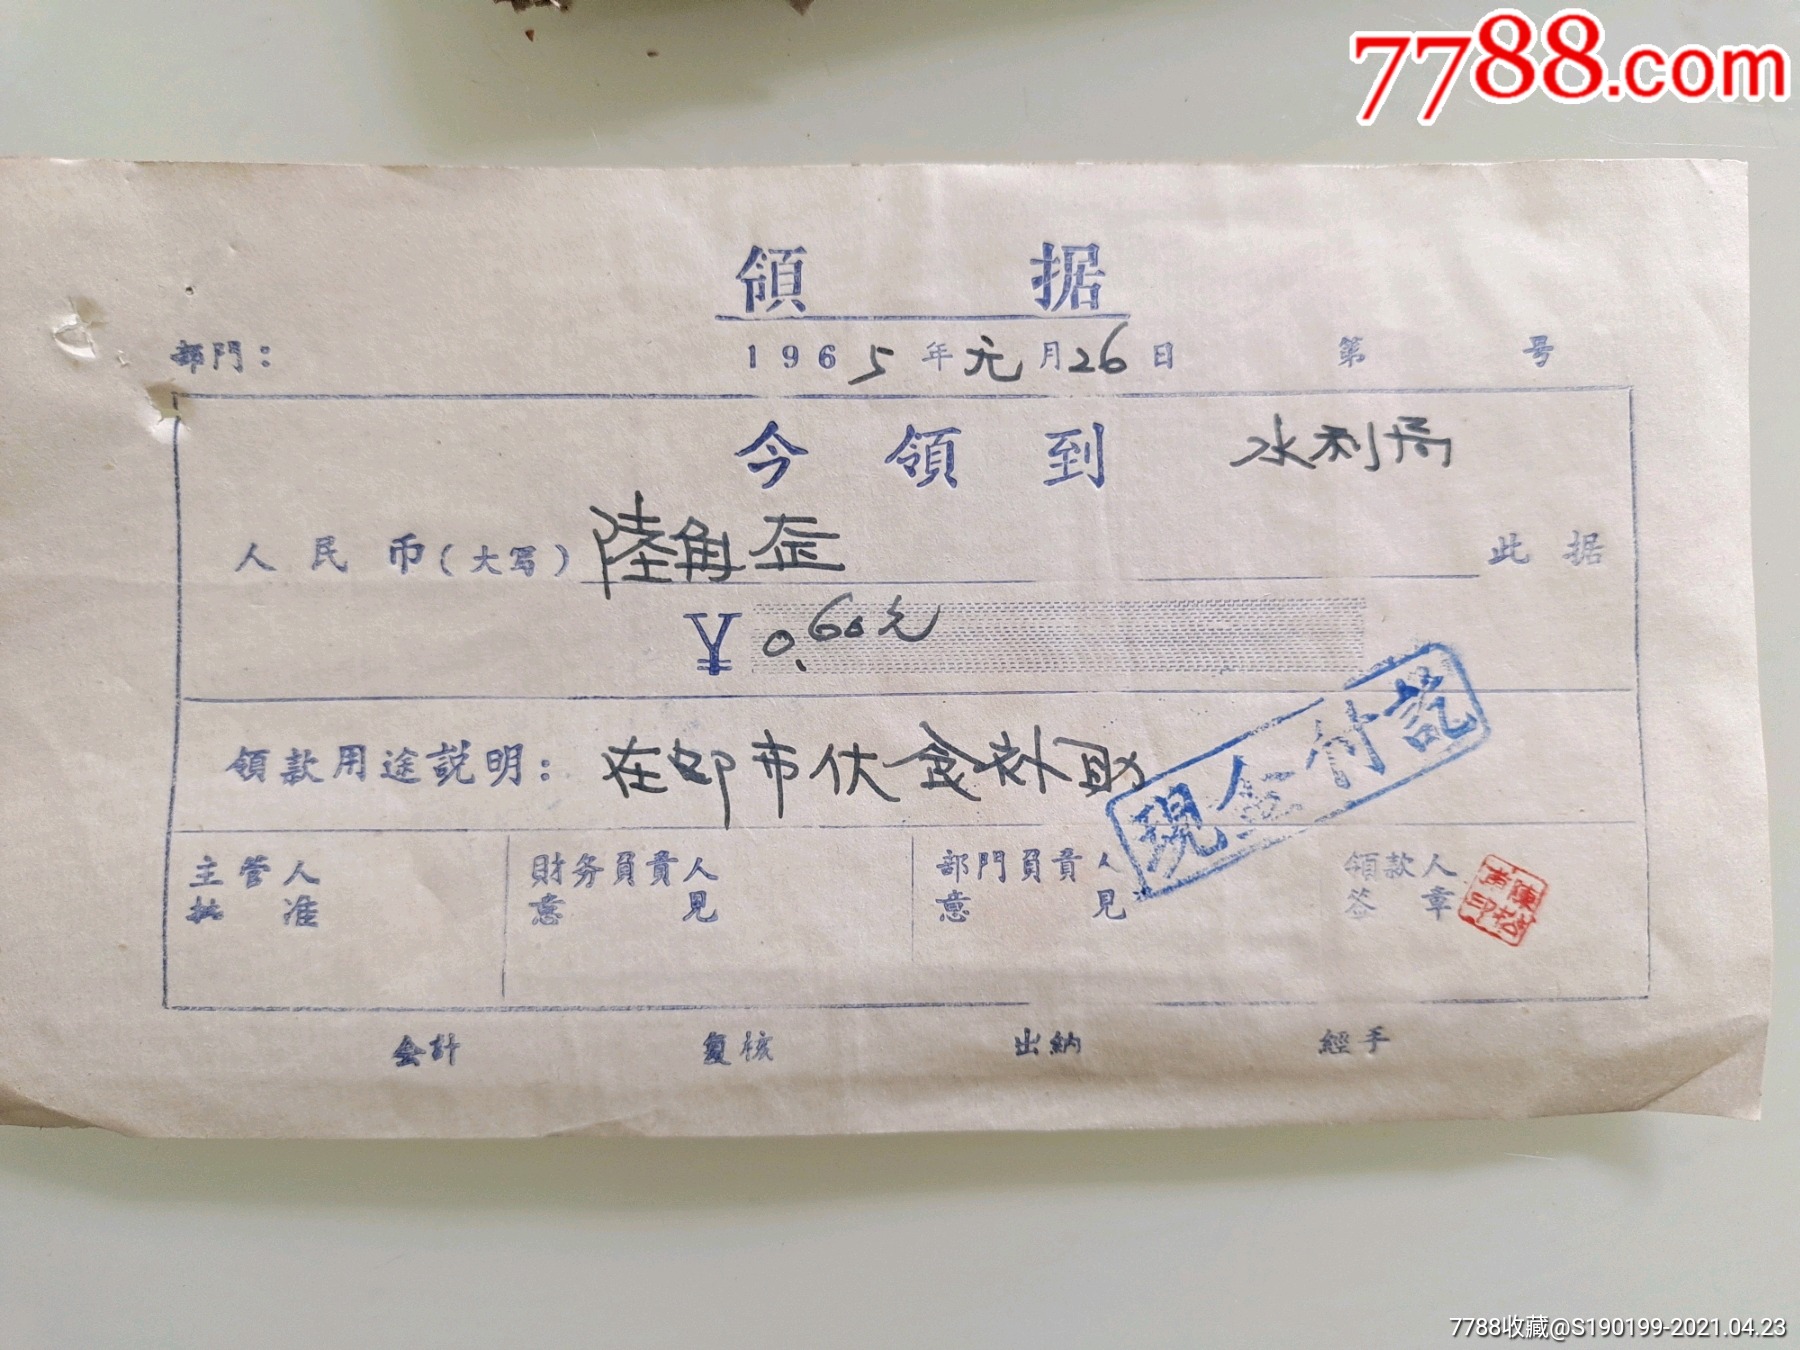 7788.com
領 据
部門： 1965年元月26日 第 号
今領到 水利局
人民币（大写）陸角正 此据
¥ 0.60元
領款用途説明：在 市伙食补助
現金付訖
主管人 財务負責人 部門負責人 領款人
批准 意見 意見 签章
陳松 印
会計 复核 出納 經手
7788收藏@S190199-2021.04.23